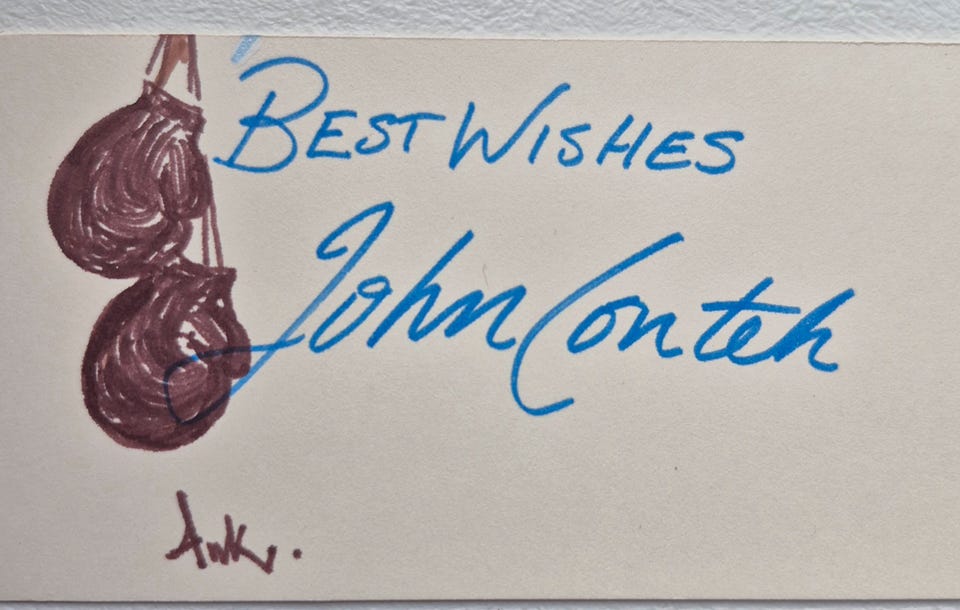 BEST WISHES
John Conteh